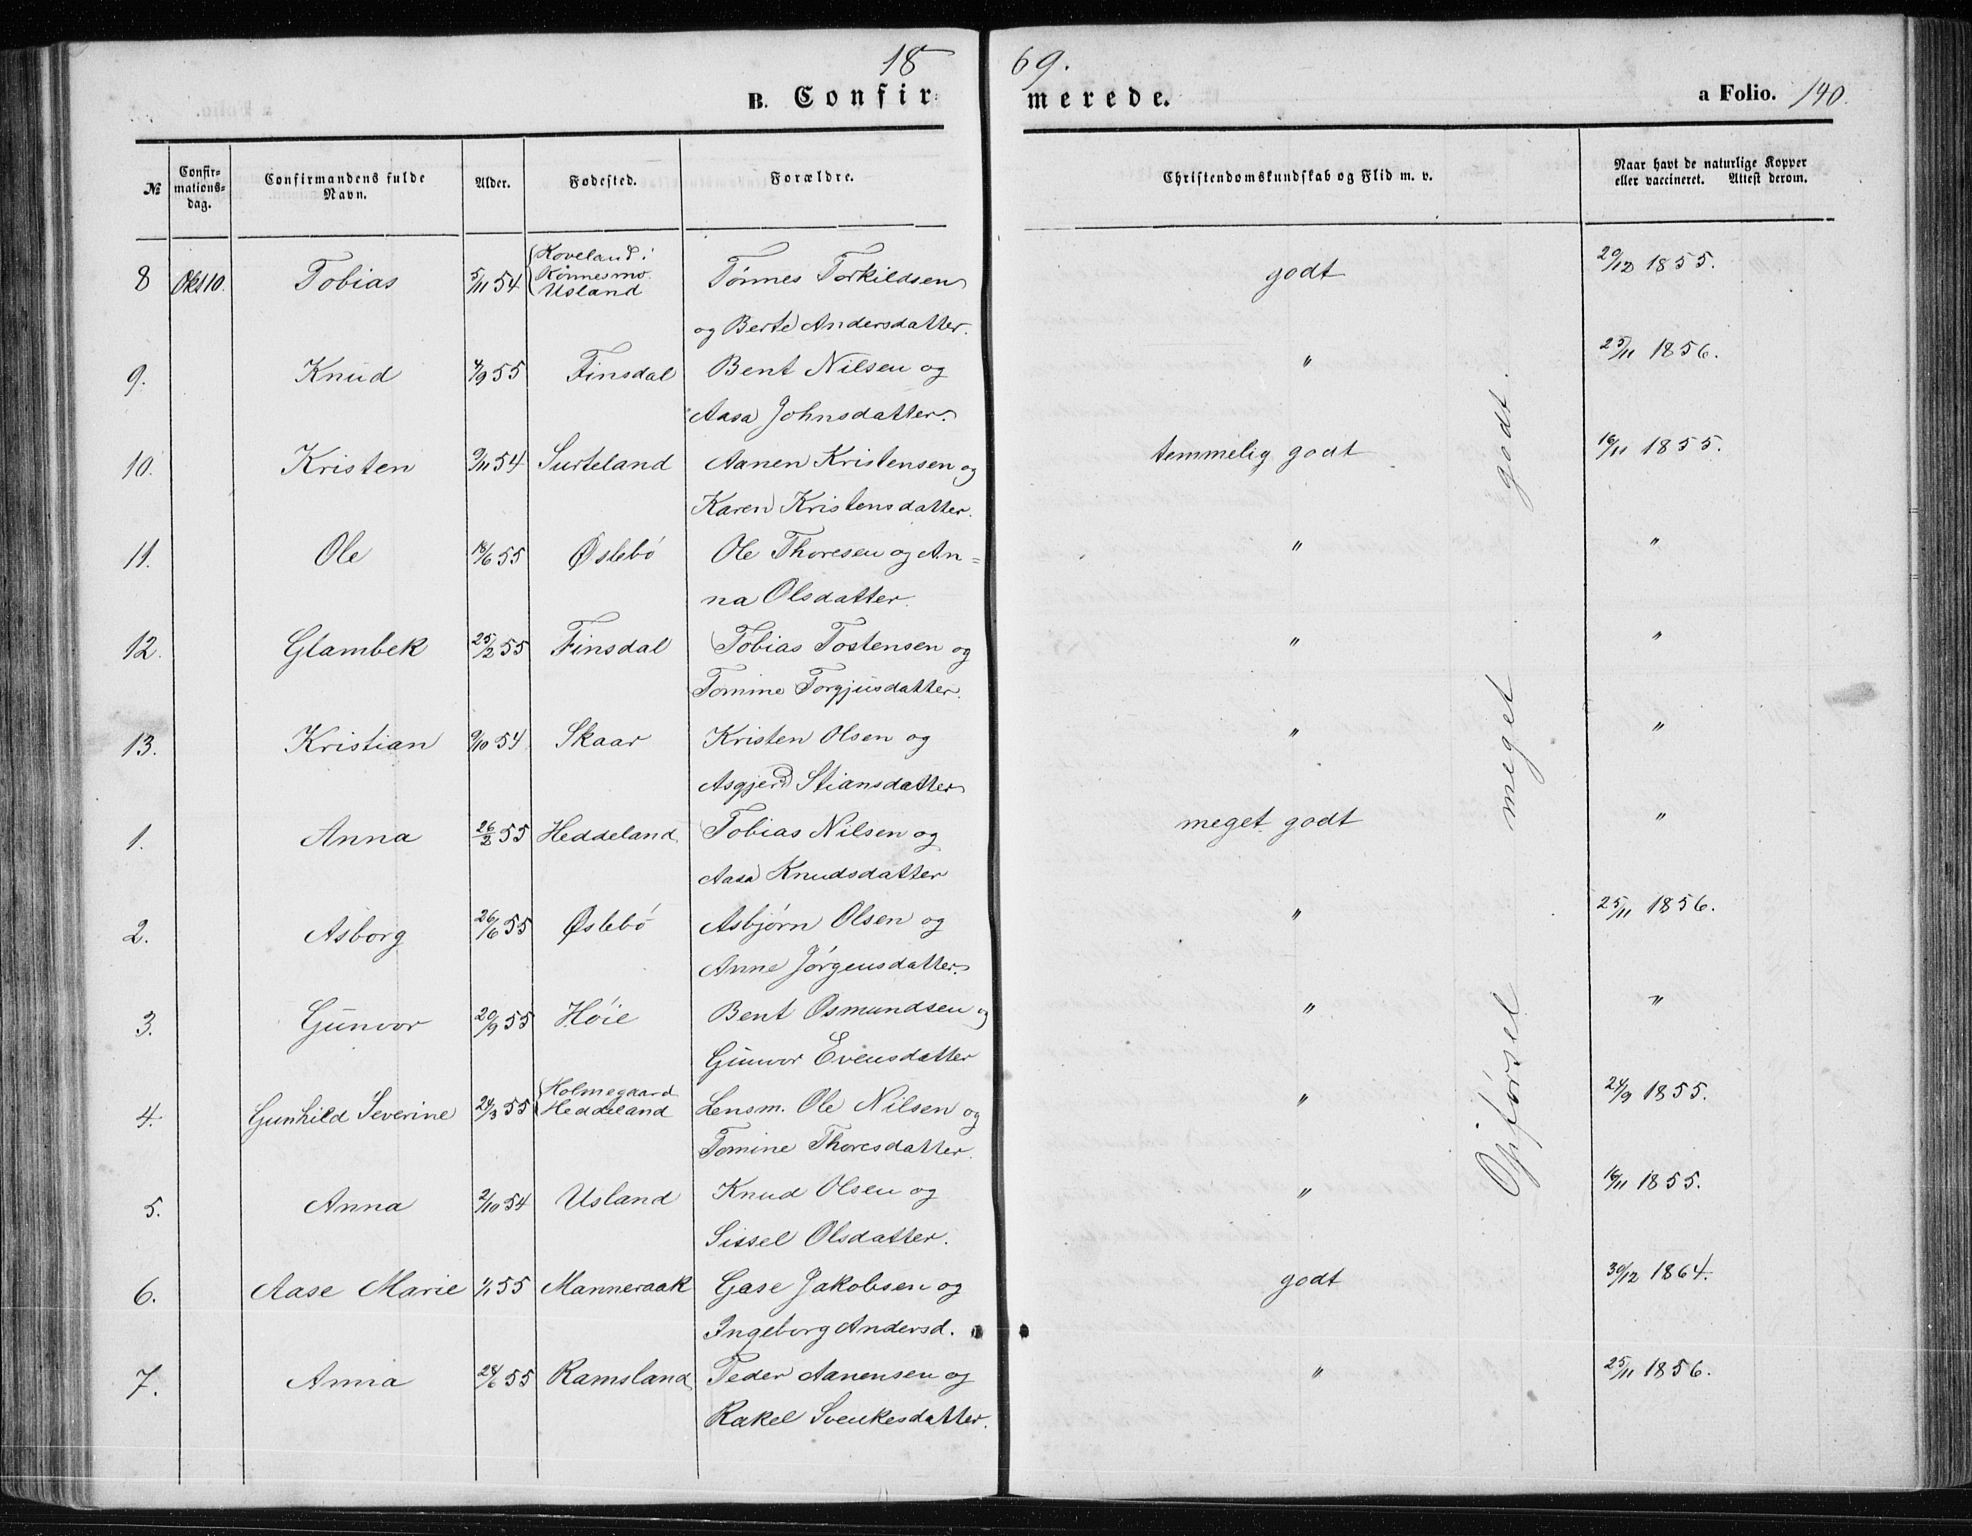 18 69.
B. Confirmerede. a Folio. 140.
№ Confirmationsdag. Confirmandens fulde Navn. Alder. Fødested. Forældre. Christendomskundskab og Flid m. v. Naar havt de naturlige Kopper eller vaccineret. Attest derom.
8 Okt 10. Tobias 5/11 54 Koveland i Tønnes Torkildsen godt 20/12 1855.
Usland
og Berte Andersdatter.
9. Knud 4/9 55 Finsdal Bent Nilsen og " 25/11 1856.
Aasa Johnsdatter.
10. Kristen 9/11 54 Surteland Aanen Kristensen og temmelig godt 16/11 1855.
Karen Kristensdatter.
11. Ole 18/6 55 Øslebø Ole Thoresen og An= " "
na Olsdatter.
12. Glambek 25/2 55 Finsdal Tobias Tostensen og " "
Tomine Torgjusdatter.
13. Kristian 9/10 54 Skaar Kristen Olsen og " "
Asgjerd Stiansdatter
1. Anna 26/2 55 Heddeland Tobias Nilsen og meget godt "
Aasa Knudsdatter
2. Asborg 26/6 55 Øslebø Asbjørn Olsen og " 25/11 1856.
Anne Jørgensdatter.
3. Gunvor 20/9 55 Høie Bent Osmundsen og " "
Gunvor Evensdatter
4. Gunhild Severine 24/3 55 Holmegaard Heddeland Lensm. Ole Nilsen og " 24/9 1855.
Tomine Thoresdatter.
5. Anna 2/10 54 Usland Knud Olsen og " 16/11 1855.
Sissel Olsdatter.
6. Aase Marie 1/1 55 Manneraak Gase Jakobsen og godt 30/12 1864.
Ingeborg Andersd.
7. Anna 28/6 55 Ramsland Peder Aanensen og " 25/11 1856.
Rakel Svenkesdatter.
Opførsel meget godt.